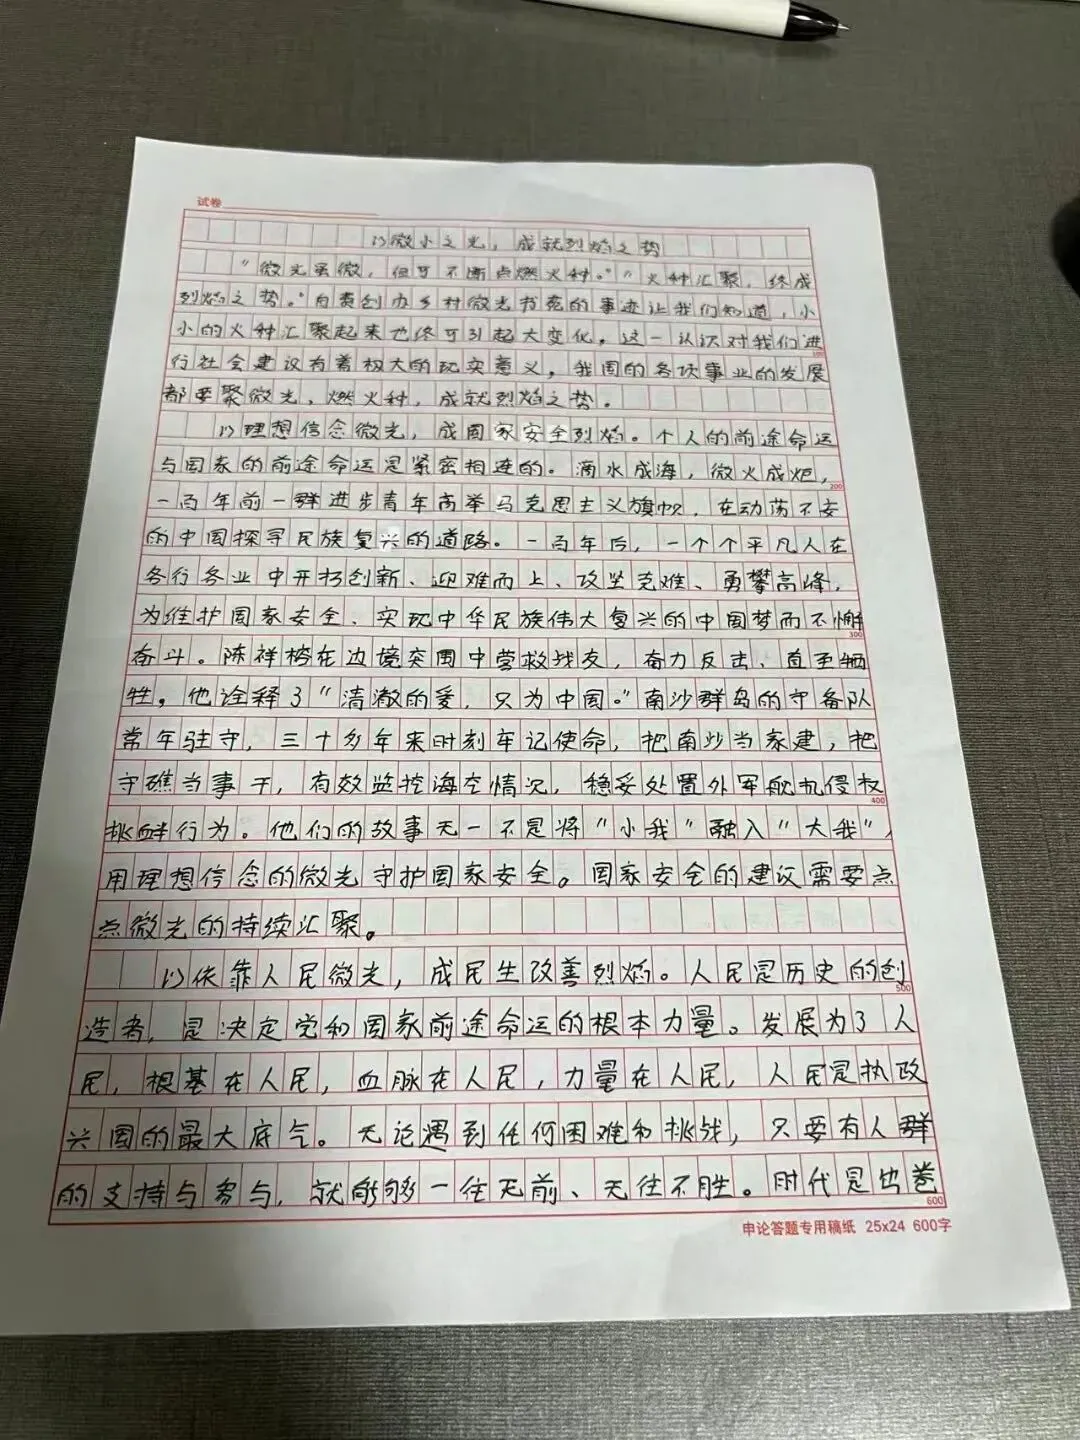 试卷
以微小之光，成就烈焰之势
“微光虽微，但可不断点燃火种。”“火种汇聚，终成
烈焰之势。”自费创办乡村微光书苑的事迹让我们知道，小
小的火种汇聚起来也终可引起大变化。这一认识对我们进
行社会建设有着极大的现实意义，我国的各项事业的发展
都要聚微光，燃火种，成就烈焰之势。
以理想信念微光，成国家安全烈焰。个人的前途命运
与国家的前途命运是紧密相连的。滴水成海，微火成炬，
一百年前一群进步青年高举马克思主义旗帜，在动荡不安
的中国探寻民族复兴的道路。一百年后，一个个平凡人在
各行各业中开拓创新、迎难而上、攻坚克难、勇攀高峰，
为维护国家安全、实现中华民族伟大复兴的中国梦而不懈
奋斗。陈祥榕在边境突围中营救战友，奋力反击、直至牺
牲，他诠释了“清澈的爱，只为中国。”南沙群岛的守备队
常年驻守，三十多年来时刻牢记使命，把南沙当家建，把
守礁当事干，有效监控海空情况，稳妥处置外军舰机侵权
挑衅行为。他们的故事无一不是将“小我”融入“大我”，
用理想信念的微光守护国家安全。国家安全的建设需要点
点微光的持续汇聚。
以依靠人民微光，成民生改善烈焰。人民是历史的创
造者，是决定党和国家前途命运的根本力量。发展为了人
民，根基在人民，血脉在人民，力量在人民，人民是执政
兴国的最大底气。无论遇到任何困难和挑战，只要有人群
的支持与参与，就能够一往无前、无往不胜。时代是出卷
100
200
300
400
500
600
申论答题专用稿纸 25x24 600字